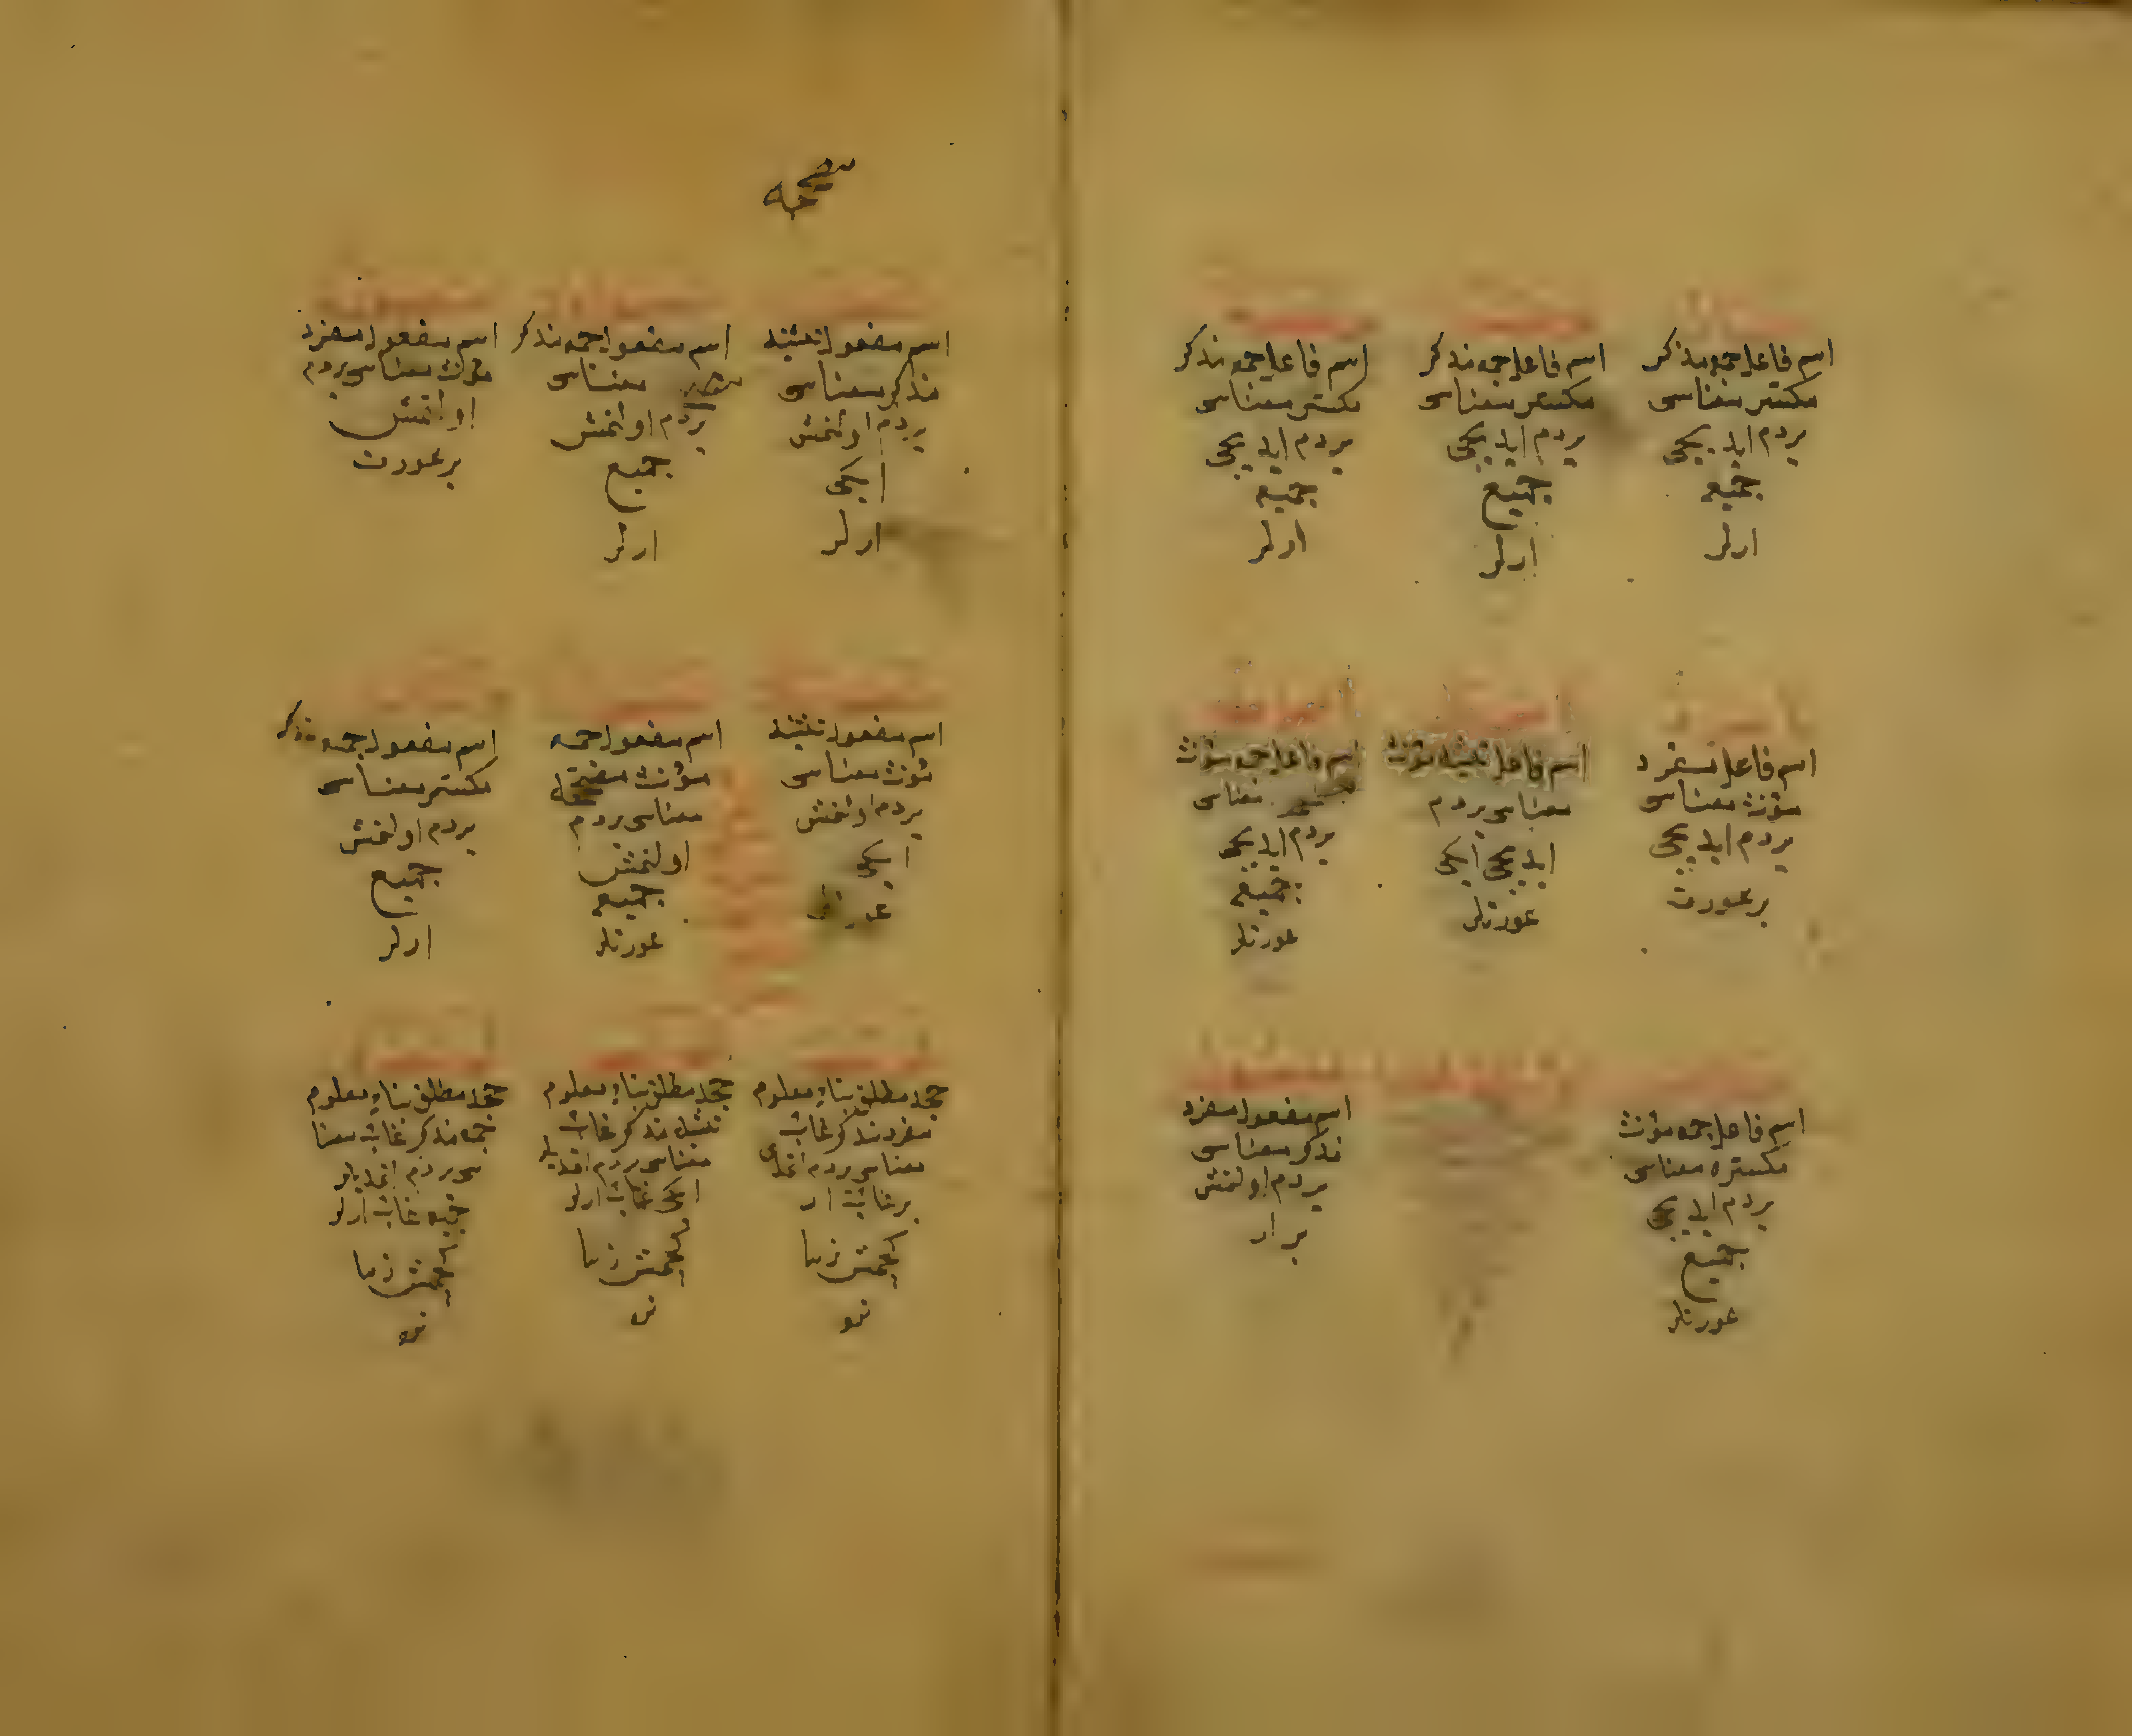 اسم فاعل جمع مذكر
مكسر معناسی
يردم ايديجی
جميع
ارلر
اسم فاعل جمع مذكر
مكسر معناسی
يردم ايديجی
جميع
ارلر
اسم فاعل جمع مذكر
مكسر معناسی
يردم ايديجی
جميع
ارلر
اسم فاعل مفرد
مؤنث معناسی
يردم ايديجی
بر عورت
اسم فاعل تثنيه مؤنث
معناسی يردم
ايديجی ايكی
عورتلر
اسم فاعل جمع مؤنث
معناسی
يردم ايديجی
جميع
عورتلر
اسم فاعل جمع مؤنث
مكسره معناسی
يردم ايديجی
جميع
عورتلر
اسم مفعول مفرد
مذكر معناسی
يردم اولنمش
بر ار
مصححه
اسم مفعول تثنيه
مذكر معناسی
يردم اولنمش
ايكی
ارلر
اسم مفعول جمع مذكر
معناسی
يردم اولنمش
جميع
ارلر
اسم مفعول مفرد
مؤنث معناسی يردم
اولنمش
بر عورت
اسم مفعول تثنيه
مؤنث معناسی
يردم اولنمش
ايكی
اسم مفعول جمع
مؤنث مصححه
معناسی يردم
اولنمش
جميع
عورتلر
اسم مفعول جمع مذكر
مكسر معناسی
يردم اولنمش
جميع
ارلر
جحد مطلق بناء معلوم
مفرد مذكر غائب
معناسی يردم اتمدی
بر غائب ار
كچمش زما
نده
جحد مطلق بناء معلوم
تثنيه مذكر غائب
معناسی يردم اتمديلر
ايكی غائب ارلر
كچمش زما
نده
جحد مطلق بناء معلوم
جمع مذكر غائب معنا
سی يردم اتمديلر
جميع غائب ارلر
كچمش زما
نده